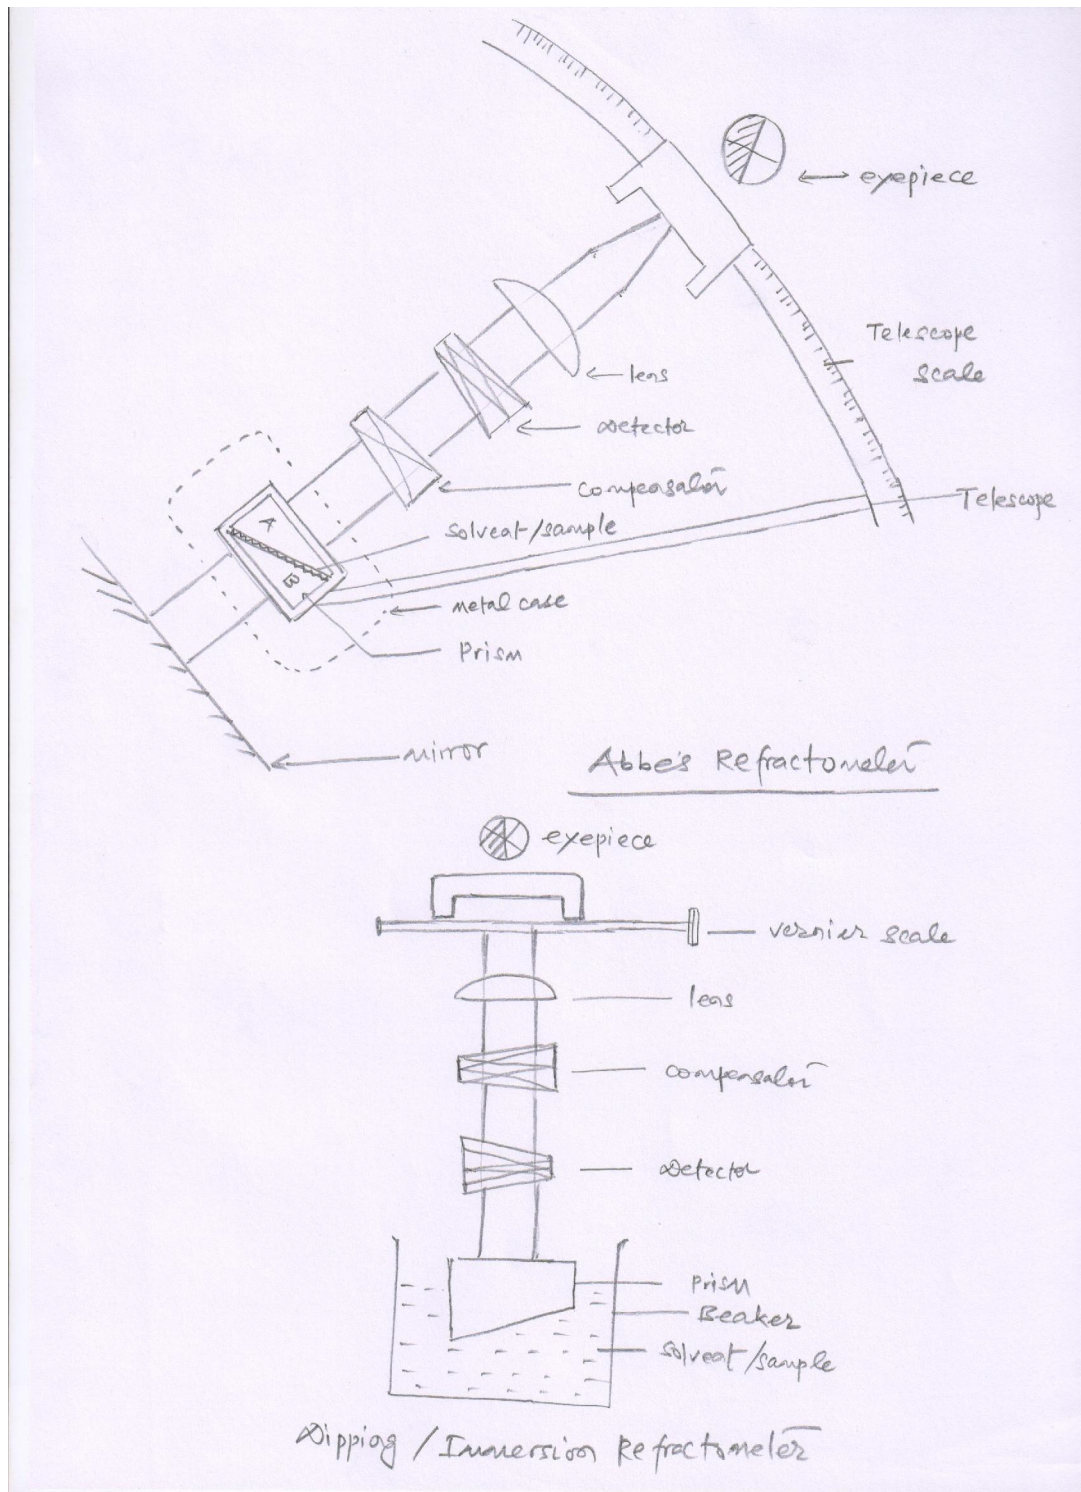 eyepiece
Telescope
scale
lens
Detector
compensator
Telescope
solvent/sample
A
B
metal case
Prism
mirror
Abbe's Refractometer
eyepiece
vernier scale
lens
compensator
Detector
Prism
Beaker
solvent/sample
Dipping / Immersion Refractometer